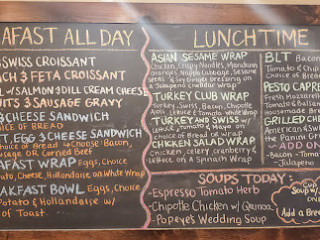 AFAST ALL DAY
SWISS CROISSANT
CH & FETA CROISSANT
W/SALMON & DILL CREAM CHEESE
UITS & SAUSAGE GRAVY
& CHEESE SANDWICH
OICE OF BREAD
T, EGG & CHEESE SANDWICH
OICE OF BREAD - Choose: Bacon,
usage or Corned Beef
AFAST WRAP Eggs, Choice
tato, Cheese, Hollandaise, on White Wrap
AKFAST BOWL Eggs, Choice
Potato & Hollandaise w/
of Toast
LUNCHTIME
ASIAN SESAME WRAP
Chicken, Crispy Noodles, Mandarin
Oranges, Cabbage, Sesame
Seeds & Soy Ginger Dressing on
a Wrap
TURKEY CLUB WRAP
Turkey, Swiss, Bacon, Chipotle
on White Wrap
TURKEY AND SWISS w/
Lettuce, Tomato & Mayo on
choice of Bread or Wrap
CHICKEN SALAD WRAP
Chicken, celery, cranberry &
Lettuce on a Spinach Wrap
BLT Bacon
Tomato & Chip
Choice of Bread
PESTO CAPRE
Fresh Mozzare
Tomato & Bals
Housemade Bre
GRILLED CHEE
American & Sw
ADD ON
- Bacon - Tomato
- Jalapeno
SOUPS TODAY:
-Espresso Tomato Herb
-Chipotle Chicken w/ Quinoa
-Popeye's Wedding Soup
Cup
Soup
Add a Bre